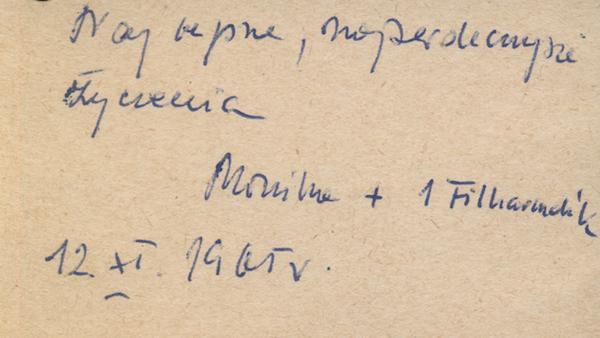 Najlepsze, najserdeczniejsze
życzenia
Monika + 1 Filharmonik
12. XI. 1965 r.